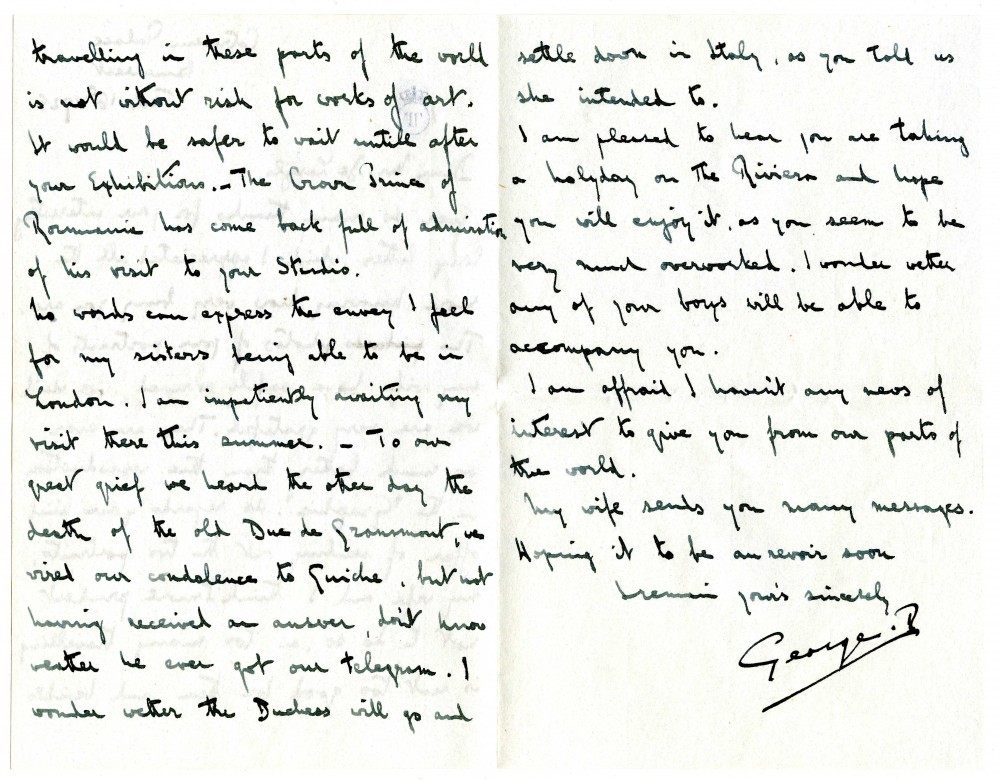 travelling in these parts of the world
is not without risk for works of art.
It would be safer to wait untill after
your Exhibitions. – The Crown Prince of
Roumania has come back full of admiration
of his visit to your Studio.
No words can express the envey I feel
for my sisters being able to be in
London. I am impatiently awaiting my
visit there this summer. – To our
great grief we heard the other day the
death of the old Duc de Grammont, we
wired our condolence to Guiche, but not
having received an answer, don't know
weather he ever got our telegram. I
wonder wether the Duchess will go and
settle down in Italy, as you told us
she intended to.
I am pleased to hear you are taking
a holyday on the Riviera and hope
you will enjoy it, as you seem to be
very much overworked. I wonder wether
any of your boys will be able to
accompany you.
I am affraid I havn't any news of
interest to give you from our parts of
the world.
My wife sends you many messages.
Hoping it to be au revoir soon
I remain your's sincerely
George. P